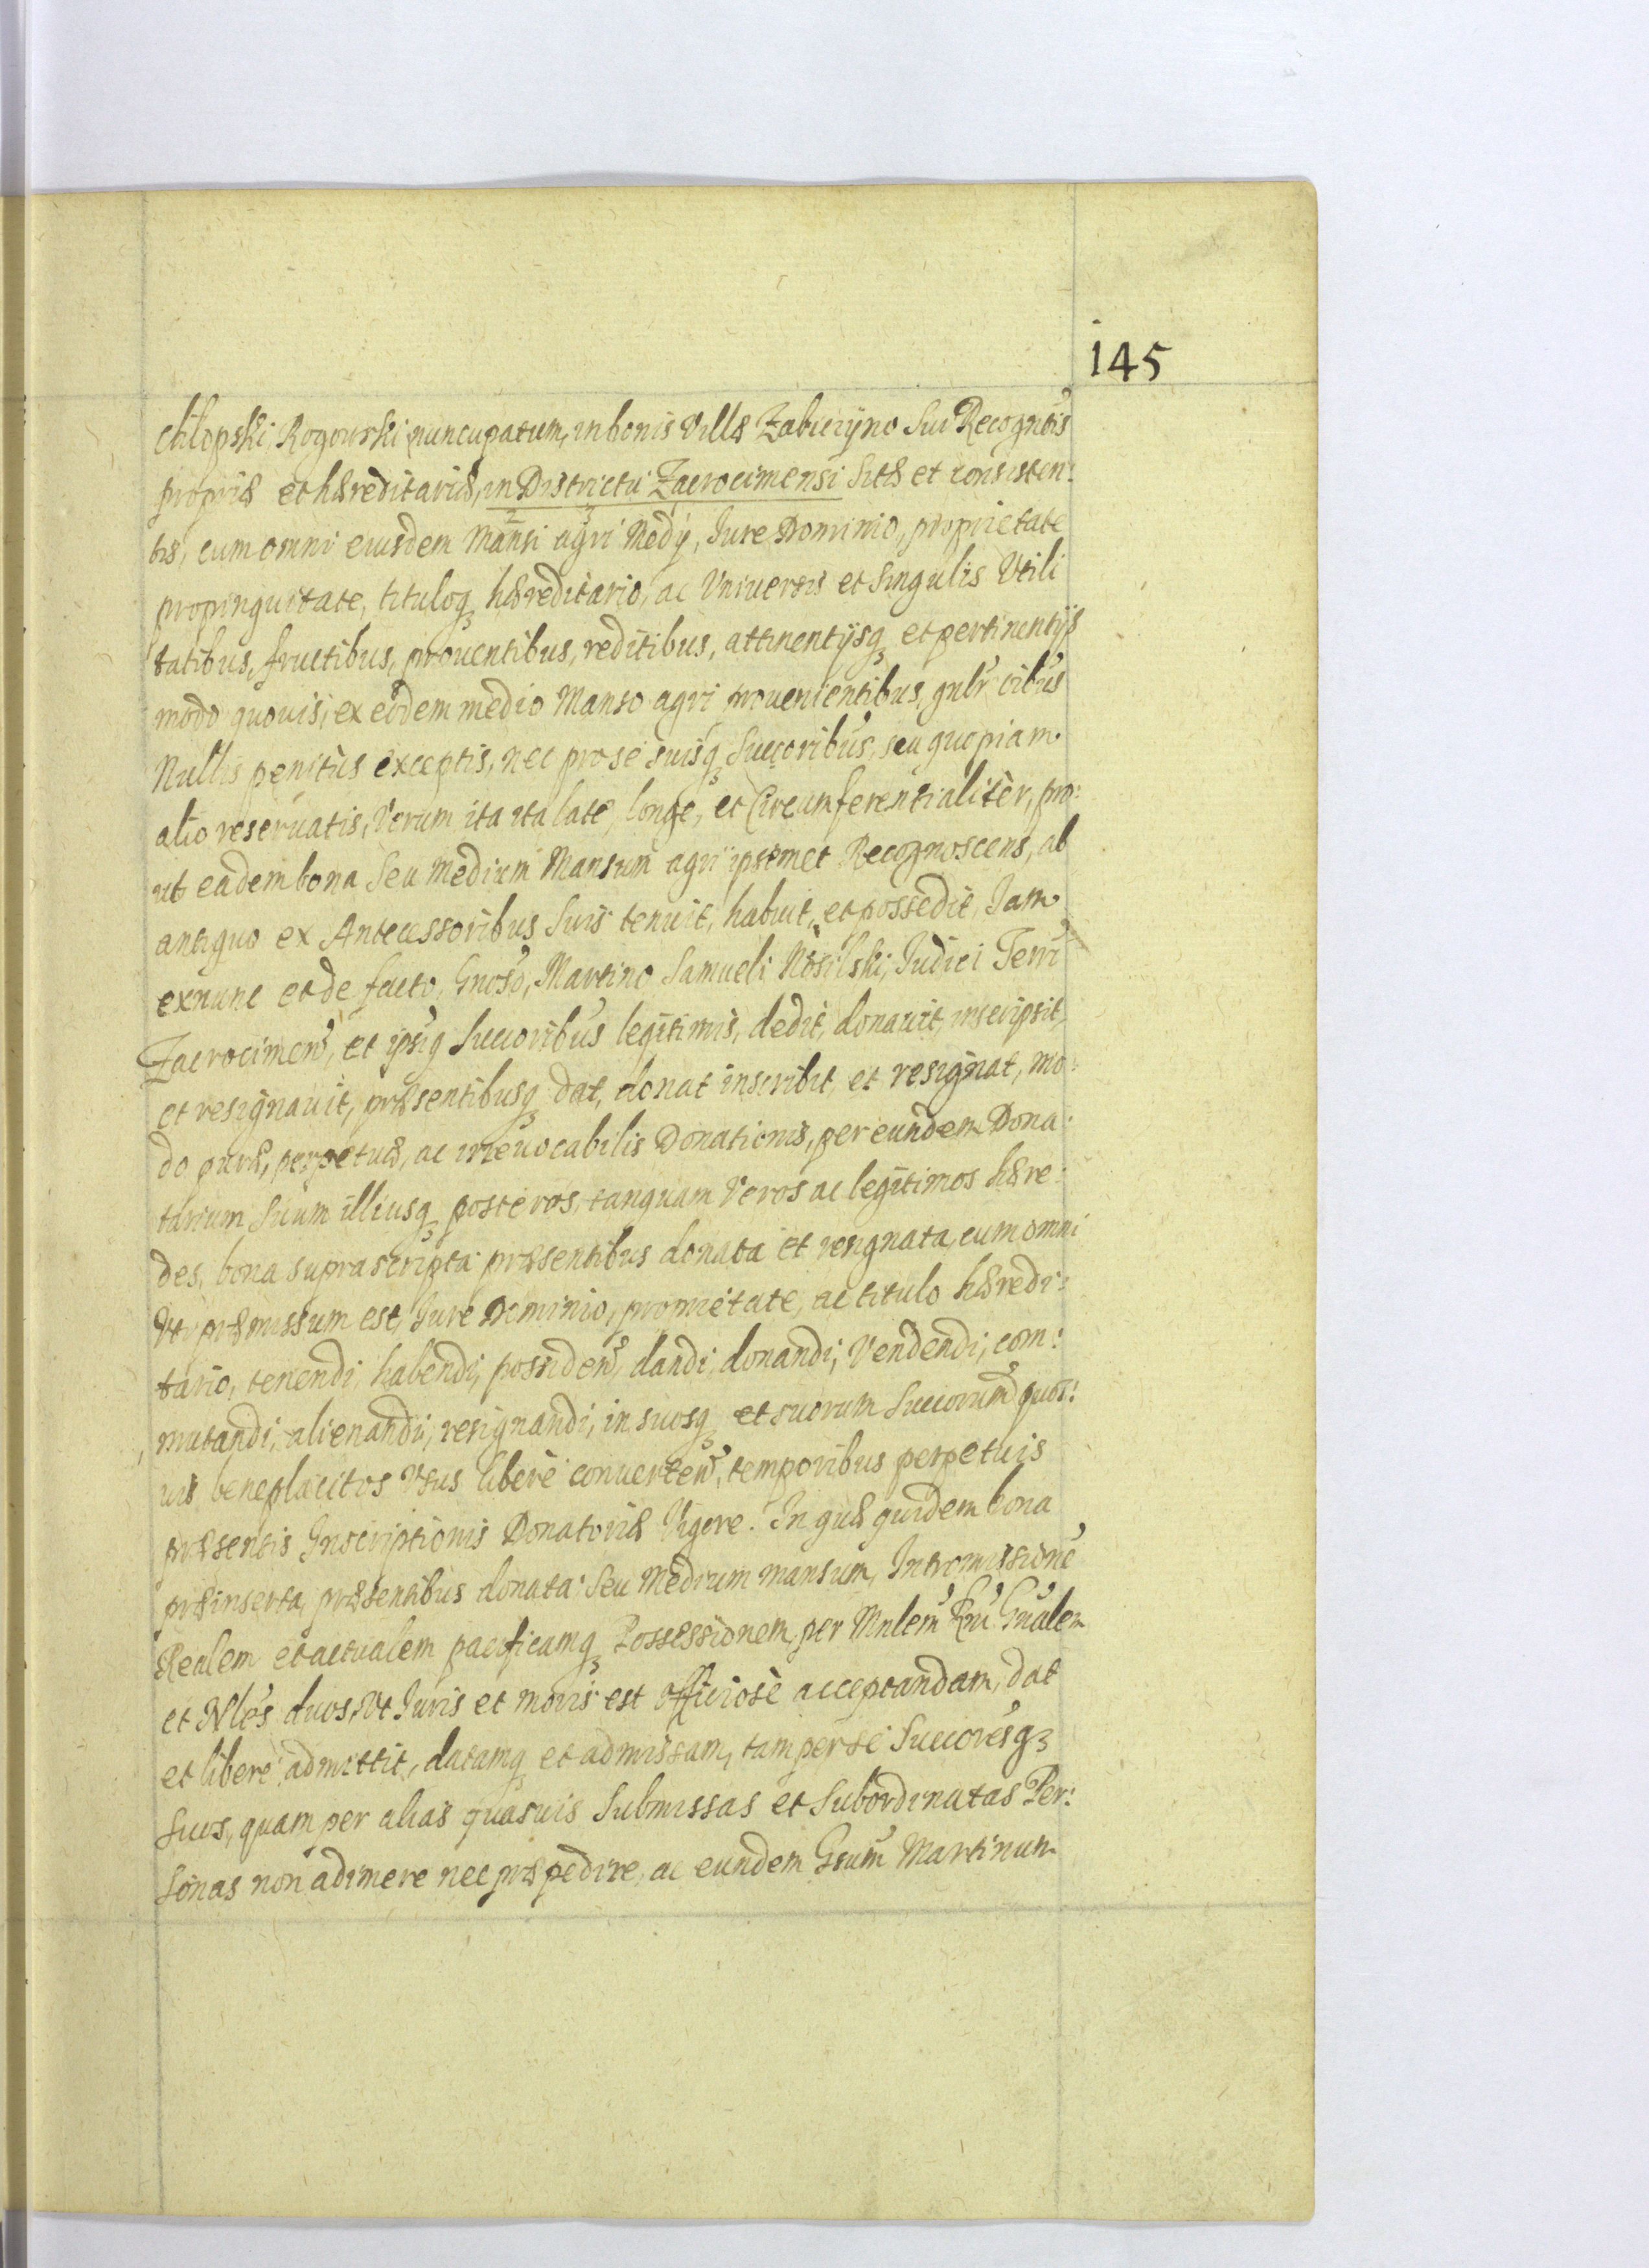 145
chlopski Rogowski nuncupatum, in bonis Villæ Zabieżyno sui Recogntis
proprijs et hæreditarijs, in Districtu Zacrocimensi sitis et consisten:
tis, cum omni eiusdem Mansi agri Medij, Jure Dominio, proprietate
propinquitate, tituloq₃ hæreditario, ac Vniuersis et singulis Vtili
tatibus, fructibus, prouentibus, reditibus, attinentijsq₃ et pertinentijs
modo quouis, ex eodem medio Manso agri prouenientibus, gnlr oibus
Nullis penitùs exceptis, nec pro se suisq₃ succoribus, seu quopiam
alio reseruatis, Verum ita ita late, longe, et Circumferentialitèr, pro:
ut eadem bona seu Medium Mansum agri ipsemet Recognoscens, ab
antiquo ex Antecessoribus suis tenuit, habuit, et possedit, Jam
exnunc et de facto, Gnoso, Martino Samueli Nosilski, Judici Terri
Zacrocimen, et ipsiq succoribus legitimis, dedit, donauit, inscripsit,
et resignauit, præsentibusq₃ dat, donat inscribit, et resignat, mo:
do puræ, perpetuæ, ac irreuocabilis Donationis, per eundem Dona:
tarium suum illiusq₃ posteros, tanquam Veros ac legitimos hære:
des, bona suprascripta præsentibus donata et resignata, cum omni
Vt præmissum est, Jure Dominio, proprietate, ac titulo hæredi:
tario, tenendi, habendi, possiden, dandi, donandi, Vendendi, com:
mutandi, alienandi, resignandi, in suosq₃ et suorum succorum quos:
uis beneplacitos Vsus liberè conuerten, temporibus perpetuis
præsentis Inscriptionis Donatoriæ Vigore. In quæ quidem bona
præinserta, præsentibus donata seu Medium mansum, Intromissione
Realem et actualem pacificamq₃ Possessionem, per Mnlem Rni Gnalem
et Nles duos, Vt Juris et moris est officiosè acceptandam, dat
et liberè admittit, datamq₃ et admissam, tam per se succoresq₃
suos, quam per alias quasuis submissas et subordinatas Per:
sonas non adimere nec præpedire, ac eundem Gsum Martinum